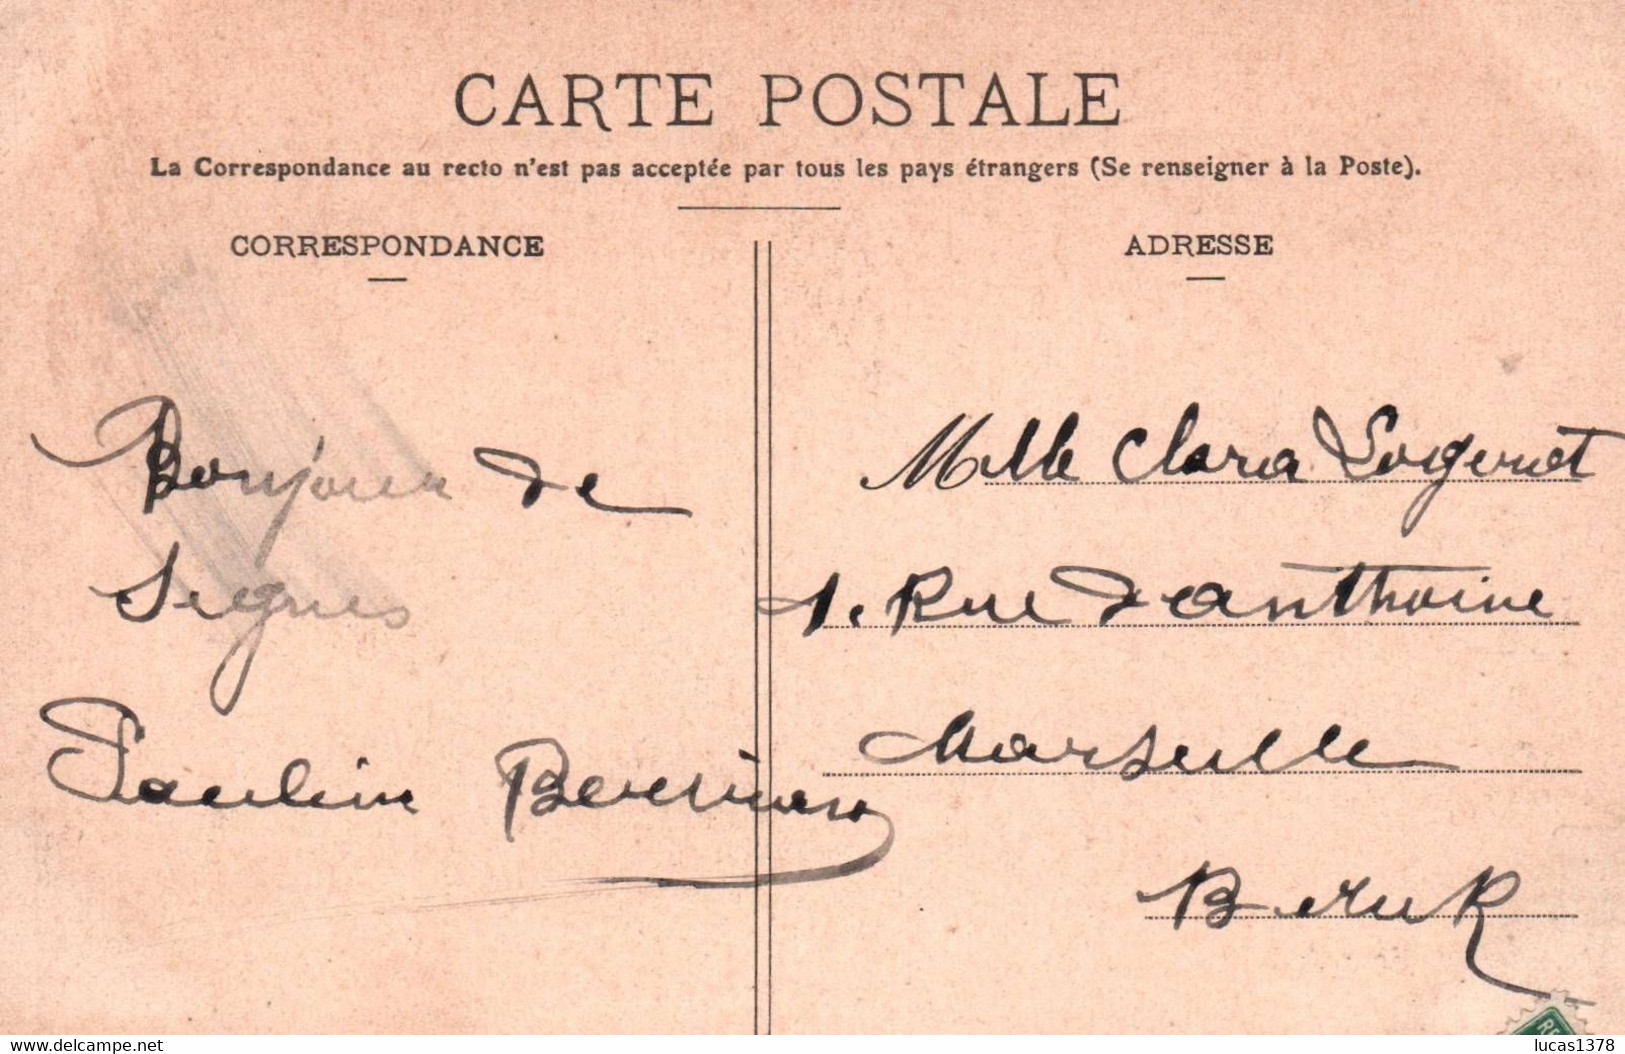 CARTE POSTALE
La Correspondance au recto n'est pas acceptée par tous les pays étrangers (Se renseigner à la Poste).
CORRESPONDANCE
ADRESSE
Bonjour de
Signes
Paulin
Melle Clara
1. Rue d'anthoine
Marseille
B. du R
RE
www.delcampe.net
lucas1378